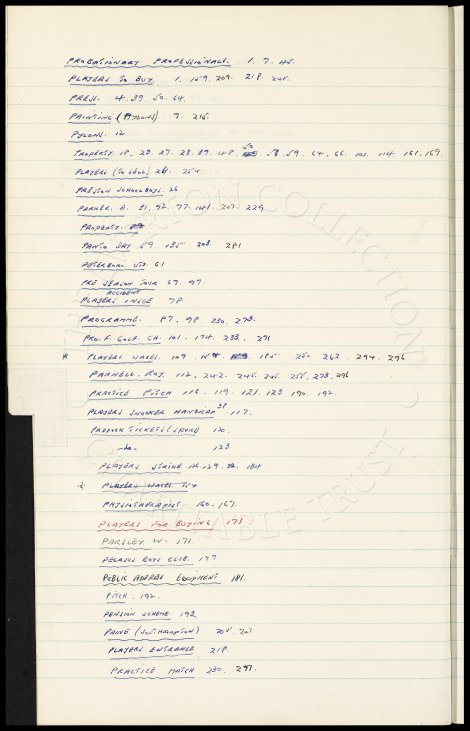 PROBATIONARY PROFESSIONALS. 1. 7. 45.
PLAYERS TO BUY. 1. 159. 209. 218. 245.
PRESS. 4. 39. 50. 64.
PAINTING (PYLONS) 7. 215.
PYLONS. 12
PROPERTY. 18. 23. 27. 28. 39. 48. 50 58. 59. 64. 66. 101. 114. 161. 169.
PLAYERS (TO SELL) 26. 254
PRESTON SCHOOLBOYS. 26
PARKER. A. 31. 92. 97. 141. 207. 229
PROPERTY.
PANTO DAY 59. 135 208. 281
PETERBORO. UTD. 61
PRE SEASON TOUR 67. 97.
PLAYERS ACCIDENT INSCE 78
PROGRAMME. 87. 98. 230. 273.
PRO. F. GOLF. CH. 101. 174. 233. 271
* PLAYERS WAGES. 109. 154 185 250. 262. 294. 296
PARNELL. ROY. 112. 242. 245. 246. 255. 273. 296
PRACTICE PITCH 116. 119. 121. 123 190. 192.
PLAYERS SNOOKER HANDICAP 38 117.
PADDOCK TICKETS (SPURS) 120.
-do- 123
PLAYERS STRIKE 126. 129. 134
* PLAYERS WAGES 154
PHYSIOTHERAPIST 160. 167.
PLAYERS FOR BUYING 171
PARSLEY W. 171.
PEGASUS BOYS CLUB. 177
PUBLIC ADDRESS EQUIPMENT 181.
PITCH. 192.
PENSION SCHEME 192.
PAINE (SOUTHAMPTON) 205. 207
PLAYERS ENTRANCE 218.
PRACTICE MATCH 230. 297.
COLLECTION
CHARITABLE TRUST